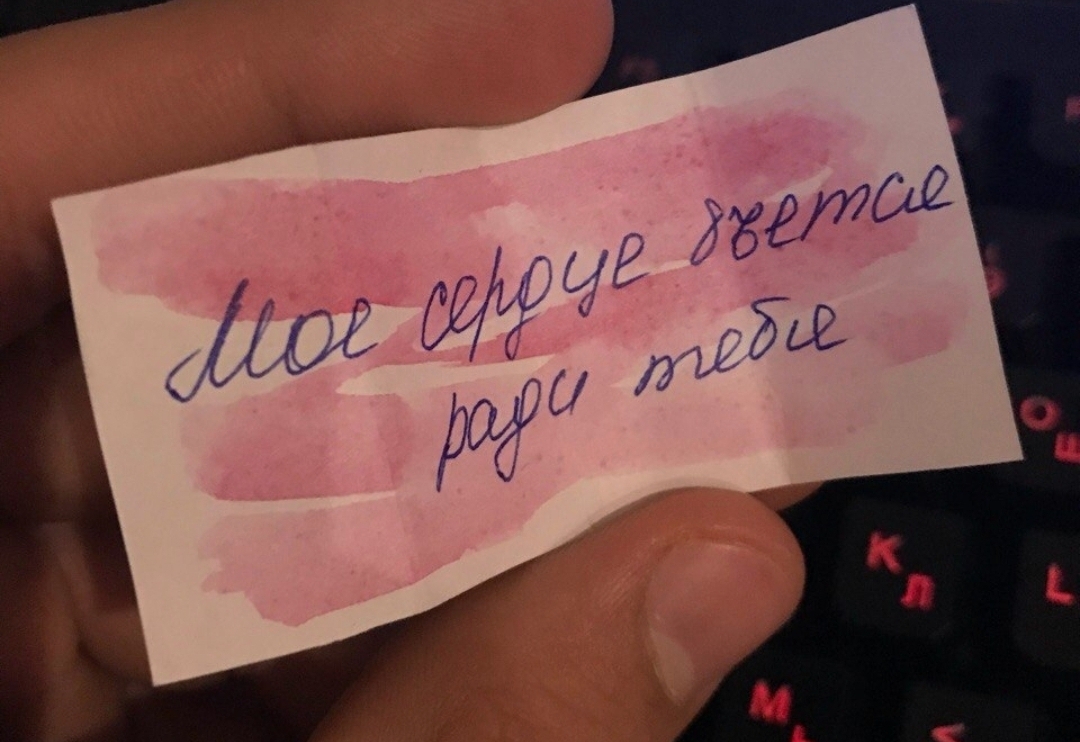 Мое сердце бьется
ради тебя
О
Ш
К
Л
L
М